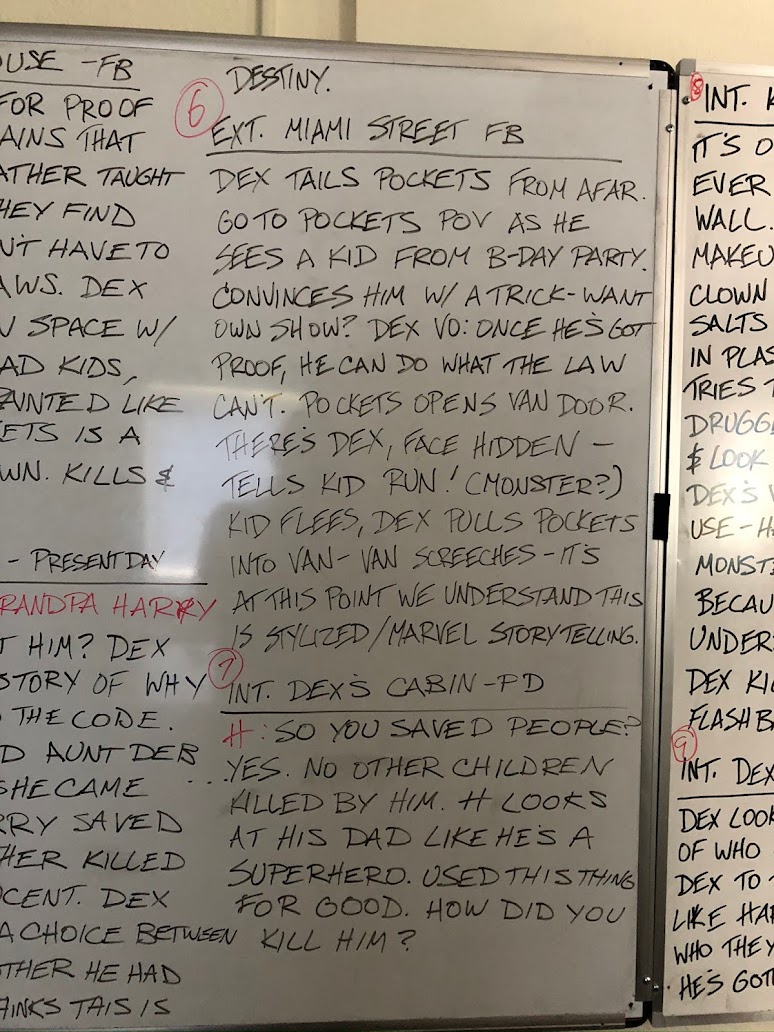 OUSE - FB
FOR PROOF
AINS THAT
ATHER TAUGHT
THEY FIND
N'T HAVE TO
AWS. DEX
SPACE W/
AD KIDS,
AINTED LIKE
ETS IS A
WN. KILLS &
- PRESENT DAY
RANDPA HARRY
T HIM? DEX
STORY OF WHY
THE CODE.
D AUNT DEB
SHE CAME
RRY SAVED
HER KILLED
OCENT. DEX
A CHOICE BETWEEN
OTHER HE HAD
HINKS THIS IS
DESTINY.
6
EXT. MIAMI STREET FB
DEX TAILS POCKETS FROM AFAR.
GO TO POCKETS POV AS HE
SEES A KID FROM B-DAY PARTY.
CONVINCES HIM W/ A TRICK - WANT
OWN SHOW? DEX VO: ONCE HE'S GOT
PROOF, HE CAN DO WHAT THE LAW
CAN'T. POCKETS OPENS VAN DOOR.
THERE'S DEX, FACE HIDDEN -
TELLS KID RUN! (MONSTER?)
KID FLEES, DEX PULLS POCKETS
INTO VAN - VAN SCREECHES - IT'S
AT THIS POINT WE UNDERSTAND THIS
IS STYLIZED/MARVEL STORYTELLING.
7
INT. DEX'S CABIN - PD
H: SO YOU SAVED PEOPLE?
... YES. NO OTHER CHILDREN
KILLED BY HIM. H LOOKS
AT HIS DAD LIKE HE'S A
SUPERHERO. USED THIS THING
FOR GOOD. HOW DID YOU
KILL HIM?
8
INT. K
IT'S O
EVER
WALL.
MAKEU
CLOWN
SALTS
IN PLAS
TRIES T
DRUGG
& LOOK
DEX'S V
USE - H
MONST
BECAU
UNDERS
DEX KIL
FLASHBA
9
INT. DEX
DEX LOOK
OF WHO
DEX TO
LIKE HA
WHO THEY
HE'S GOT